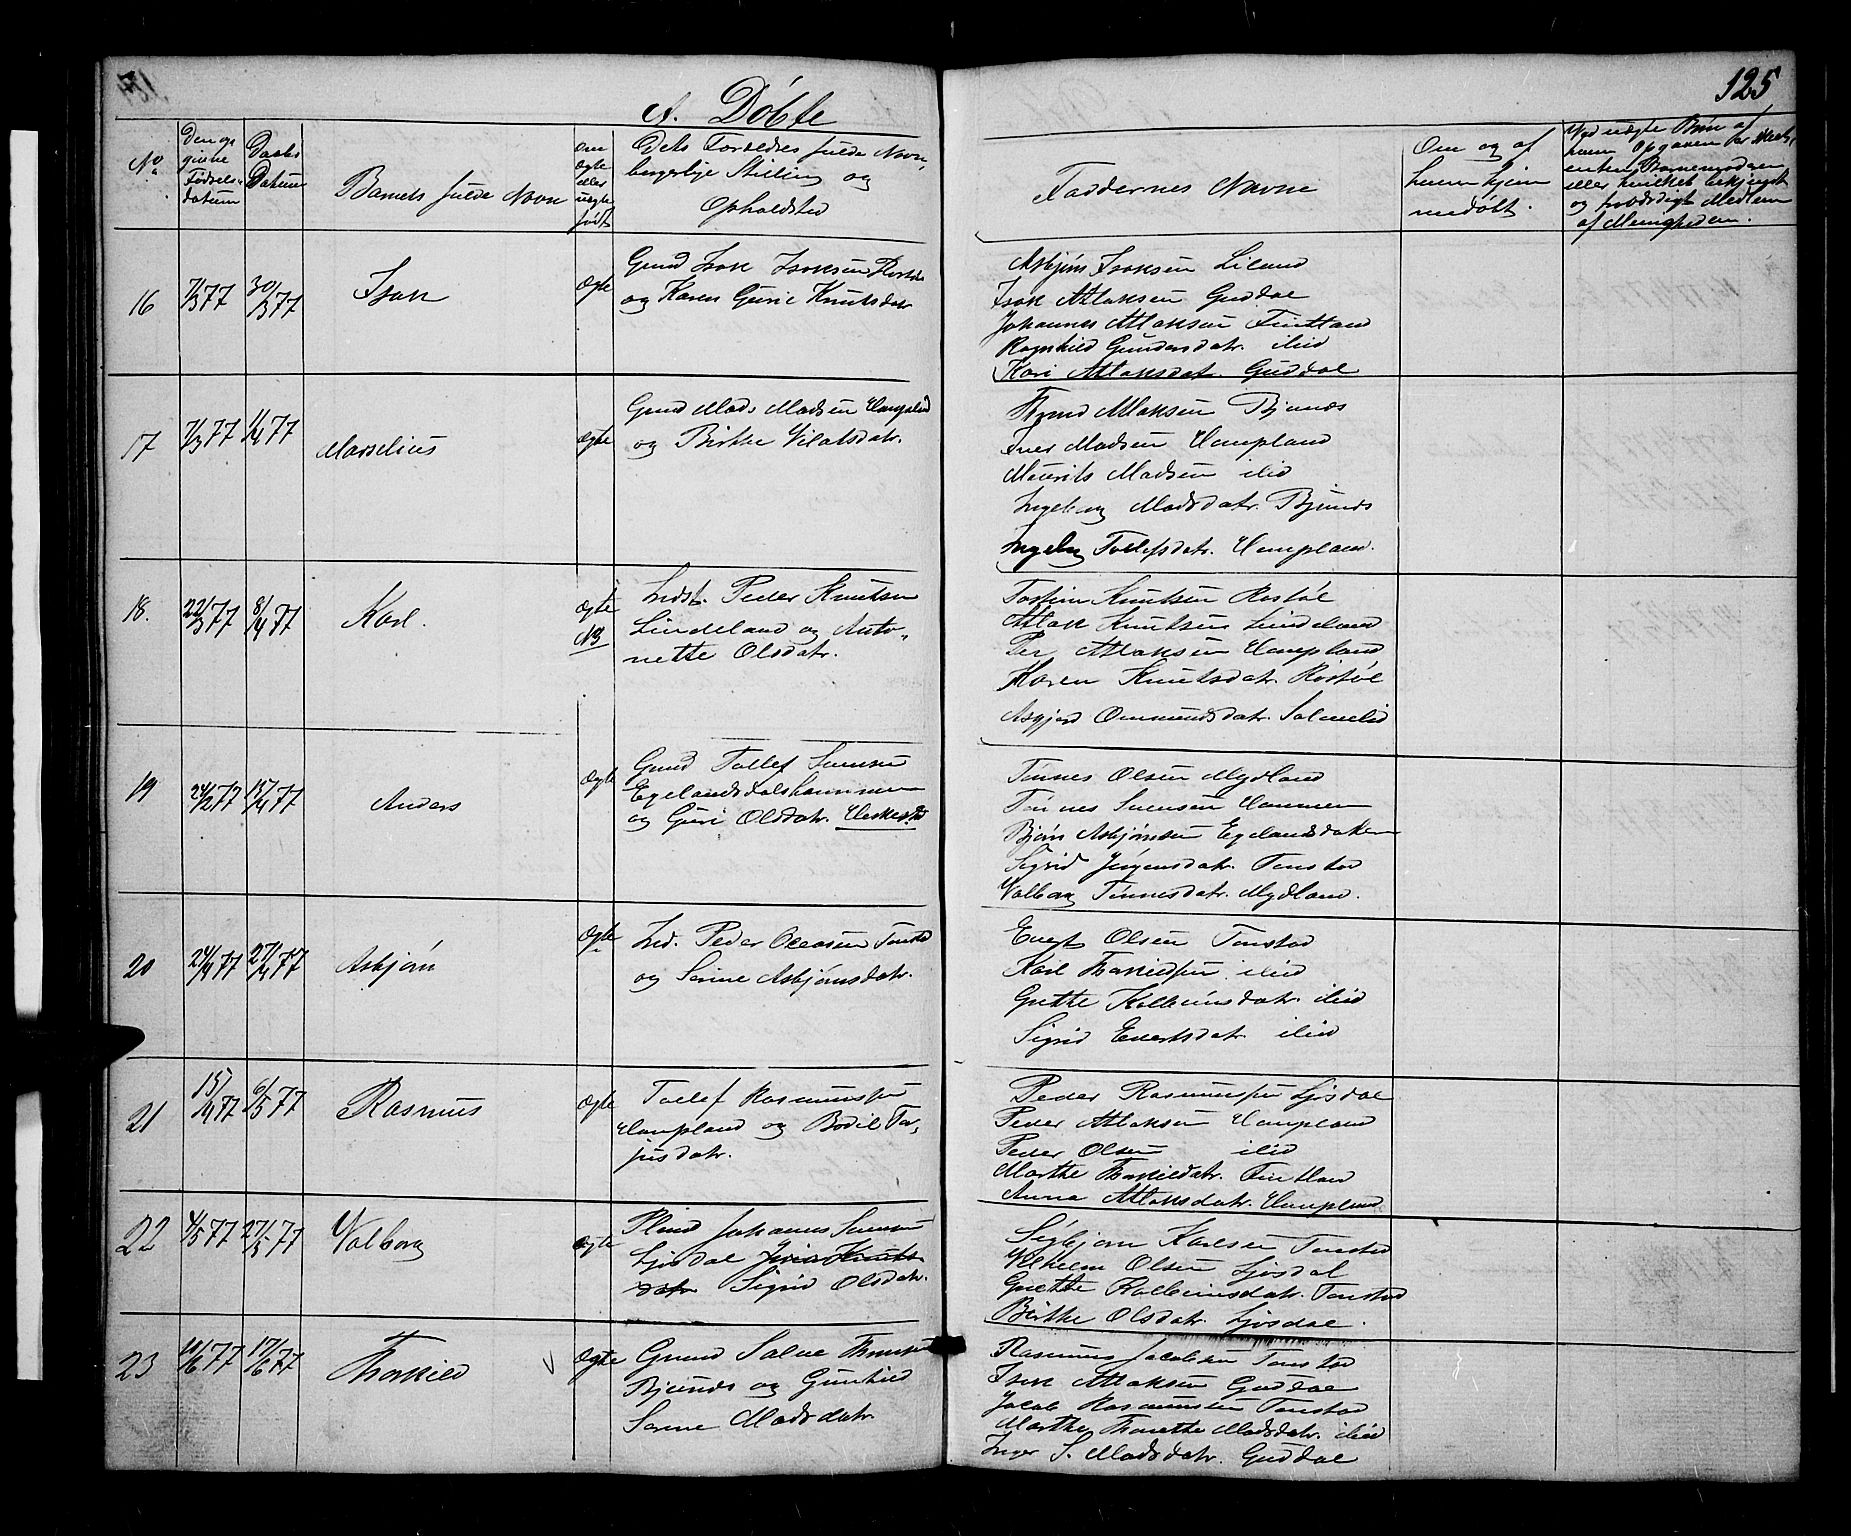 125
A. Döbte
No.
Den op
givne
Födsels-
datum
Daabs
Datum
Barnets fulde Navn
Om
Ægte
eller
uægte
födt
Dets Forældres fulde Navn,
borgerlige Stilling og
Opholdsted
Faddernes Navne
Om og af
hvem hjem
medöbt.
Ved uægte Börn af
hvem Opgaven er
enten Barnemoderen
eller hvilket bekjendt
og troværdigt Medlem
af Menigheden.
16
7/3 77
30/3 77
Isak
Ægte
Gmd Isak Isaksen
og Karen Gurie Knutsdatr
Asbjörn Isaksen Liland
Isak Atlaksen Guddal
Johannes Atlaksen Fintland
Ragnhild Gundersdatr. ibid
Kari Atlaksdatr. Guddal
17
7/3 77
1/4 77
Marselius
Ægte
Gmd Mads Madsen Haugland
og Birthe Vilatsdatr.
Atlaksen Bjunes
Iver Madsen Haugland
Mourits Madsen ibid
Ingeborg Madsdatr. Bjunes
Ingeborg Tollefsdatr. Haugland.
18.
22/3 77
8/4 77
Karl.
Ægte
NB
Indst. Peder Knutsen
Lindeland og Anto-
nette Olsdatr.
Tostein Knutsen Rostöl
Atlak Knutsen Lindeland
Per Atlaksen Haugland
Karen Knutsdatr. Rostöl
Asgjerd Ommundsdatr. Salmelid
19
24/2 77
15/4 77
Anders
Ægte
Gmd Tollef Svensen
Egelandsdalshammen
og Guri Olsdatr. Heskestad
Tönnes Olsen Mydland
Tönnes Svensen Hammen
Björn Asbjörnsen Egelandsdalen
Sigrid Jörgensdatr. Tonstad
Valborg Tönnesdatr. Mydland.
20
24/4 77
27/4 77
Asbjörn
Ægte
Ind. Peder Olausen Tonstad
og Serine Asbjörnsdatr.
Evert Olsen Tonstad
Karl Thorkildsen ibid
Grethe Kolbeinsdatr. ibid
Sigrid Evertsdatr. ibid
21
15/4 77
6/5 77
Rasmus
Ægte
Tollef Rasmussen
Haugland og Bodil Tar-
jusdatr.
Peder Rasmussen Ljosdal
Peder Atlaksen Haugland
Peder Olsen ibid
Marthe Thorkildsdatr. Fintland
Anna Atlaksdatr. Haugland
22
4/5 77
27/5 77
Valborg
Ægte
Johannes Svensen
Ljosdal Knuts
datr Sigrid Olsdatr.
Sigbjörn Karlsen Tonstad
Vilhelm Olsen Ljosdal
Grethe Kolbeinsdatr. Tonstad
Birthe Olsdatr. Ljosdal.
23
10/6 77
17/6 77
Thorkild
Ægte
Gmd Salve Thomsen
Bjunes og Gunhild
Serine Madsdatr
Rasmus Jacobsen Tonstad
Isak Atlaksen Guddal
Jakob Rasmussen Tonstad
Marthe Thonette Madsdatr. ibid
Inger S. Madsdatr. Guddal